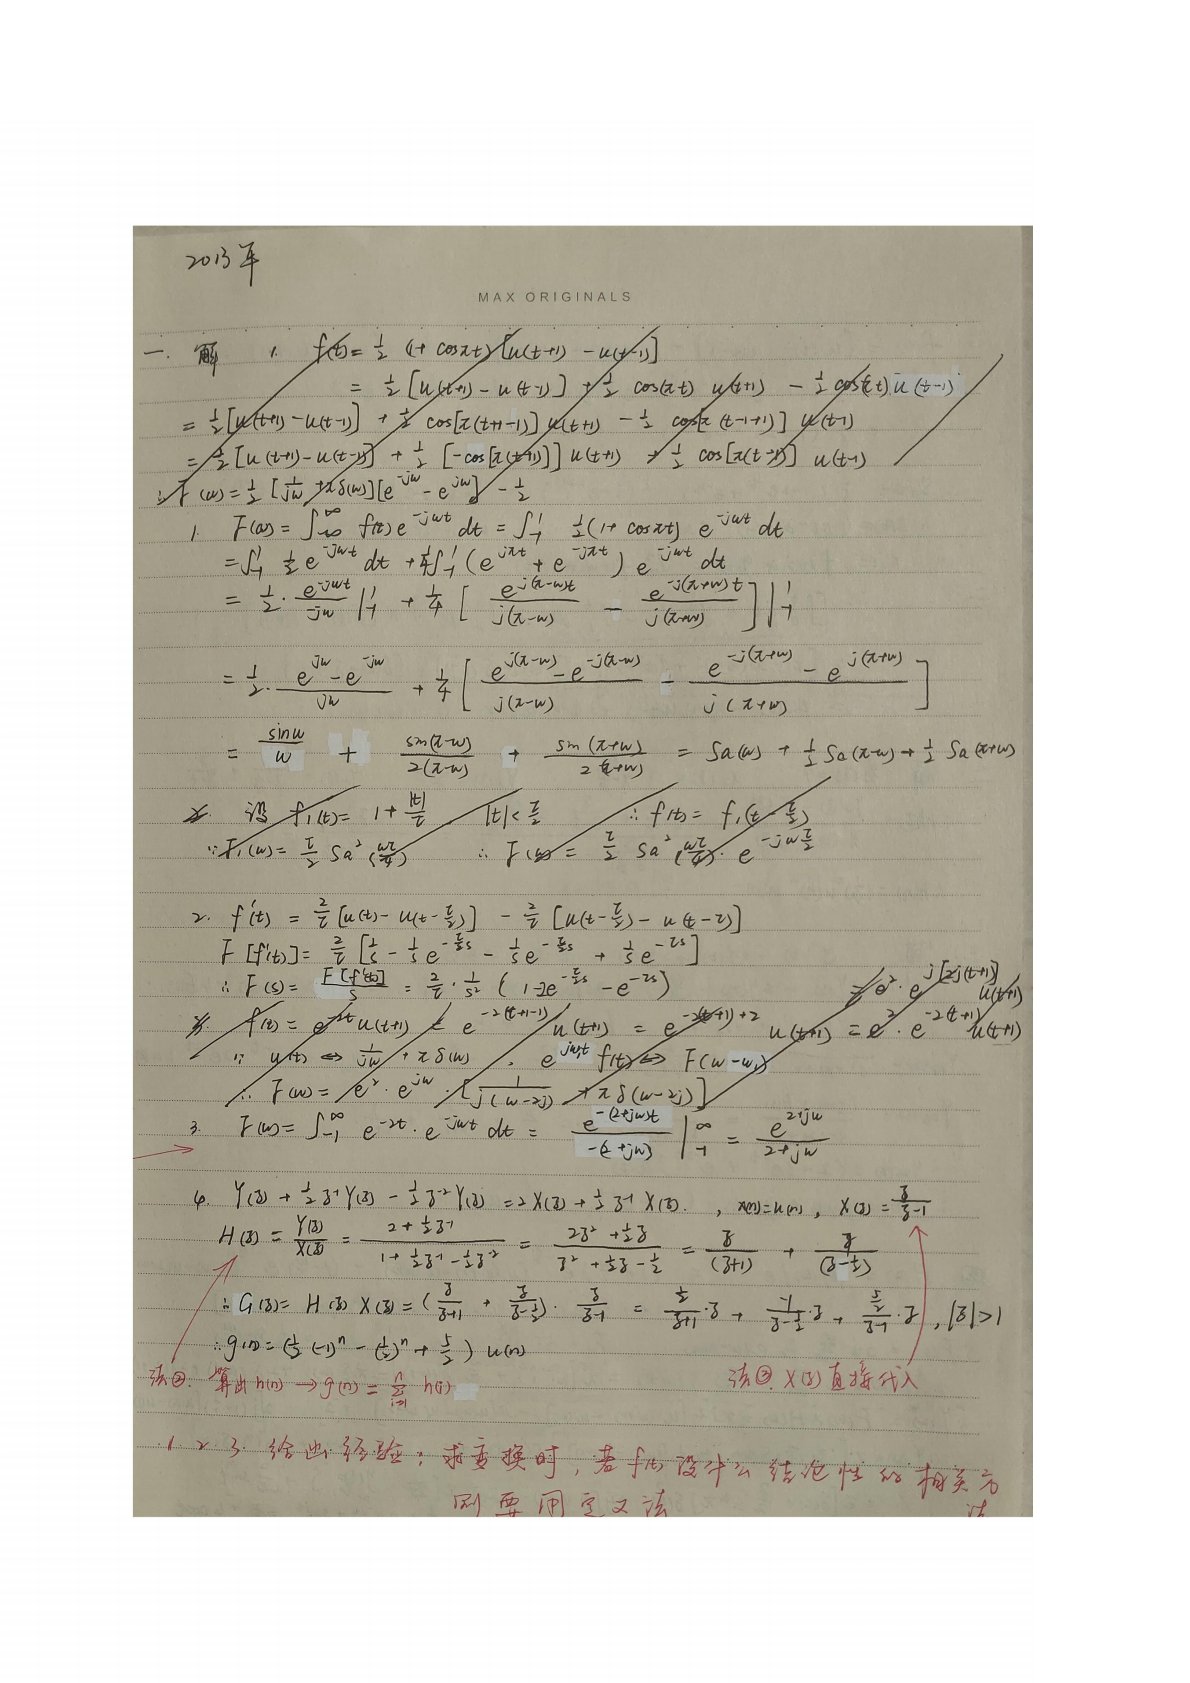 2013年
MAX ORIGINALS
一. 解 1. f(t) = 1/2 (1+ cosπt) [u(t+1) - u(t-1)]
= 1/2 [u(t+1) - u(t-1)] + 1/2 cos(πt) u(t+1) - 1/2 cos(πt) u(t-1)
= 1/2 [u(t+1) - u(t-1)] + 1/2 cos[π(t+1-1)] u(t+1) - 1/2 cos[π(t-1+1)] u(t-1)
= 1/2 [u(t+1) - u(t-1)] + 1/2 [-cos[π(t+1)]] u(t+1) + 1/2 cos[π(t-1)] u(t-1)
∴ F(w) = 1/2 [1/jw + πδ(w)][e^-jw - e^jw] - 1/2
1. F(w) = ∫_-∞^∞ f(t) e^-jwt dt = ∫_-1^1 1/2(1+ cosπt) e^-jwt dt
= ∫_-1^1 1/2 e^-jwt dt + 1/4 ∫_-1^1 (e^jπt + e^-jπt) e^-jwt dt
= 1/2 · e^-jwt/-jw |_-1^1 + 1/4 [ e^j(π-w)t / j(π-w) - e^-j(π+w)t / j(π+w) ] |_-1^1
= 1/2 · (e^jw - e^-jw)/jw + 1/4 [ (e^j(π-w) - e^-j(π-w)) / j(π-w) - (e^-j(π+w) - e^j(π+w)) / j(π+w) ]
= sinw/w + sin(π-w)/2(π-w) + sin(π+w)/2(π+w) = Sa(w) + 1/2 Sa(π-w) + 1/2 Sa(π+w)
2. 设 f₁(t) = 1 + |t|/τ |t| < τ/2 ∴ f(t) = f₁(t - τ/2)
∵ F₁(w) = τ/2 Sa²(wτ/4) ∴ F(w) = τ/2 Sa²(wτ/4) · e^-jwτ/2
2. f'(t) = 2/τ [u(t) - u(t-τ/2)] - 2/τ [u(t-τ/2) - u(t-τ)]
F[f'(t)] = 2/τ [1/s - 1/s e^-τ/2s - 1/s e^-τ/2s + 1/s e^-τs]
∴ F(s) = F[f'(t)]/s = 2/τ · 1/s² (1-2e^-τ/2s - e^-τs)
= e² · e^j[2j(t+1)] u(t+1)
3. f(t) = e^-2t u(t+1) = e^-2(t+1-1) u(t+1) = e^-2(t+1)+2 u(t+1) = e² · e^-2(t+1) u(t+1)
∵ u(t) ⇔ 1/jw + πδ(w) , e^jw₁t f(t) ⇔ F(w-w₁)
∴ F(w) = e² · e^jw · [1/j(w-2j) + πδ(w-2j)]
3. F(w) = ∫_-1^∞ e^-2t · e^-jwt dt = e^-(2+jw)t / -(2+jw) |_-1^∞ = e^2+jw / 2+jw
4. Y(z) + 1/2 z^-1 Y(z) - 1/2 z^-2 Y(z) = 2X(z) + 1/2 z^-1 X(z). , x(n)=u(n), X(z) = z/z-1
H(z) = Y(z)/X(z) = (2 + 1/2 z^-1)/(1 + 1/2 z^-1 - 1/2 z^-2) = (2z² + 1/2 z)/(z² + 1/2 z - 1/2) = z/(z+1) + z/(z-1/2)
∴ G(z) = H(z) X(z) = (z/z+1 + z/z-1/2) · z/z-1 = 1/2/z+1 ·z + -1/z-1/2 ·z + 5/2/z-1 ·z , |z|>1
∴ g(n) = (1/2 (-1)^n - (1/2)^n + 5/2) u(n)
法②. 算出h(n) → g(n) = Σ h(i) 法①. X(z)直接代入
1 2 3 给出经验: 求变换时, 若 f(t) 没什么结论性的相关方法
则要用定义法